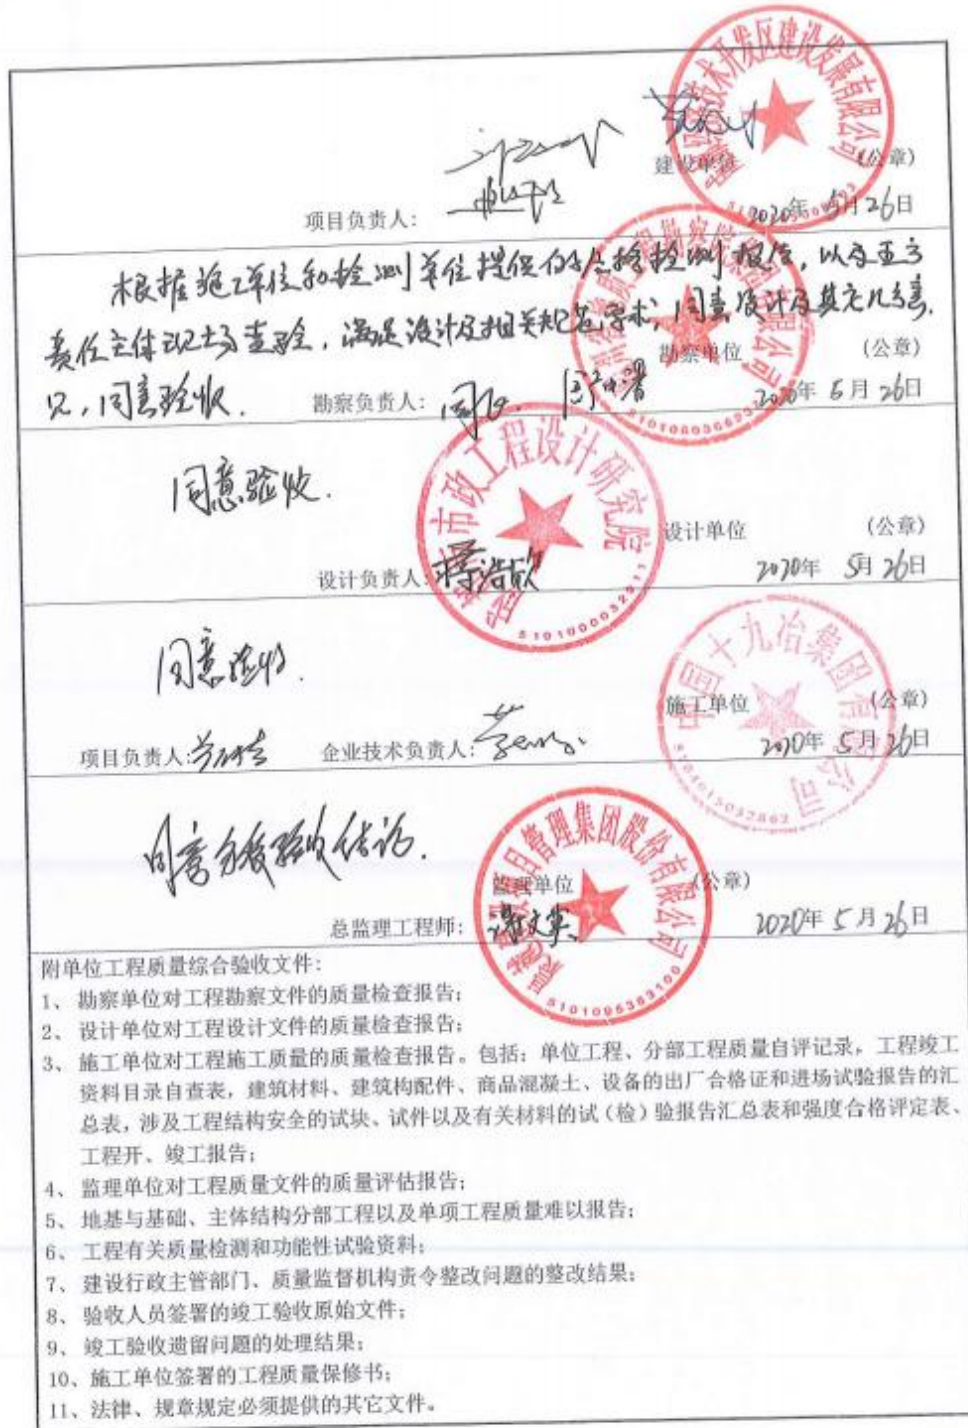 技术开发区建设发展有限公司
建设单位 (公章)
项目负责人:
2020年 5月26日
根据施工单位和检测单位提供的合格检测报告，以及五方
责任主体现场查验，满足设计及相关规范要求，同意设计及其它几方意
见，同意验收.
勘察单位 (公章)
勘察负责人:
2020年 5月26日
同意验收.
市政工程设计研究院
设计单位 (公章)
设计负责人: 蒋浩欣
2020年 5月26日
5101000032311
同意验收.
中国十九冶集团有限公司
施工单位 (公章)
项目负责人: 企业技术负责人:
2020年 5月26日
5104015032862
同意各方验收结论.
项目管理集团股份有限公司
监理单位 (公章)
总监理工程师: 谢文英
2020年 5月26日
5101095383100
附单位工程质量综合验收文件:
1、 勘察单位对工程勘察文件的质量检查报告;
2、 设计单位对工程设计文件的质量检查报告;
3、 施工单位对工程施工质量的质量检查报告。包括: 单位工程、分部工程质量自评记录，工程竣工
资料目录自查表，建筑材料、建筑构配件、商品混凝土、设备的出厂合格证和进场试验报告的汇
总表，涉及工程结构安全的试块、试件以及有关材料的试（检）验报告汇总表和强度合格评定表、
工程开、竣工报告;
4、 监理单位对工程质量文件的质量评估报告;
5、 地基与基础、主体结构分部工程以及单项工程质量难以报告;
6、 工程有关质量检测和功能性试验资料;
7、 建设行政主管部门、质量监督机构责令整改问题的整改结果;
8、 验收人员签署的竣工验收原始文件;
9、 竣工验收遗留问题的处理结果;
10、施工单位签署的工程质量保修书;
11、法律、规章规定必须提供的其它文件。